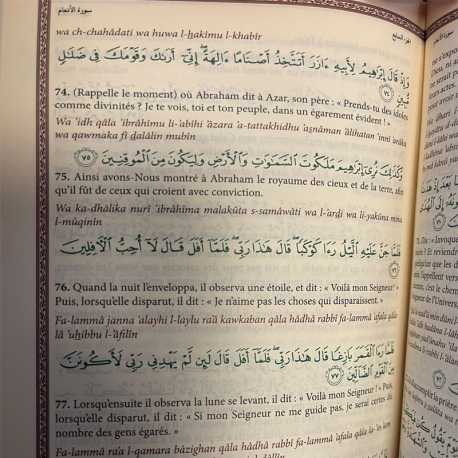 سورة الأنعام
الجزء السابع
wa ch-chahâdati wa huwa l-ḥakîmu l-khabîr
وَإِذْ قَالَ إِبْرَٰهِيمُ لِأَبِيهِ ءَازَرَ أَتَتَّخِذُ أَصْنَامًا ءَالِهَةً إِنِّىٓ أَرَىٰكَ وَقَوْمَكَ فِى ضَلَٰلٍ
مُّبِينٍ ٧٤
74. (Rappelle le moment) où Abraham dit à Azar, son père : « Prends-tu des idoles
comme divinités ? Je te vois, toi et ton peuple, dans un égarement évident ! »
Wa 'idh qâla 'ibrâhîmu li-'abîhi 'âzara 'a-tattakhidhu 'aṣnâman 'âlihatan 'innî 'arâka
wa qawmaka fî ḍalâlin mubîn
وَكَذَٰلِكَ نُرِىٓ إِبْرَٰهِيمَ مَلَكُوتَ ٱلسَّمَٰوَٰتِ وَٱلْأَرْضِ وَلِيَكُونَ مِنَ ٱلْمُوقِنِينَ ٧٥
75. Ainsi avons-Nous montré à Abraham le royaume des cieux et de la terre, afin
qu'il fût de ceux qui croient avec conviction.
Wa ka-dhâlika nurî 'ibrâhîma malakûta s-samâwâti wa l-'arḍi wa li-yakûna mina
l-mûqinîn
فَلَمَّا جَنَّ عَلَيْهِ ٱلَّيْلُ رَءَا كَوْكَبًا قَالَ هَٰذَا رَبِّى فَلَمَّآ أَفَلَ قَالَ لَآ أُحِبُّ ٱلْءَافِلِينَ
٧٦
76. Quand la nuit l'enveloppa, il observa une étoile, et dit : « Voilà mon Seigneur ! »
Puis, lorsqu'elle disparut, il dit : « Je n'aime pas les choses qui disparaissent. »
Fa-lammâ janna 'alayhi l-laylu ra'â kawkaban qâla hâdhâ rabbî fa-lammâ 'afala qâla
lâ 'uḥibbu l-'âfilîn
فَلَمَّا رَءَا ٱلْقَمَرَ بَازِغًا قَالَ هَٰذَا رَبِّى فَلَمَّآ أَفَلَ قَالَ لَئِن لَّمْ يَهْدِنِى رَبِّى لَأَكُونَنَّ
مِنَ ٱلْقَوْمِ ٱلضَّآلِّينَ ٧٧
77. Lorsqu'ensuite il observa la lune se levant, il dit : « Voilà mon Seigneur ! » Puis,
lorsqu'elle disparut, il dit : « Si mon Seigneur ne me guide pas, je serai certes du
nombre des gens égarés. »
Fa-lammâ ra'a l-qamara bâzighan qâla hâdhâ rabbî fa-lammâ 'afala qâla la-'in